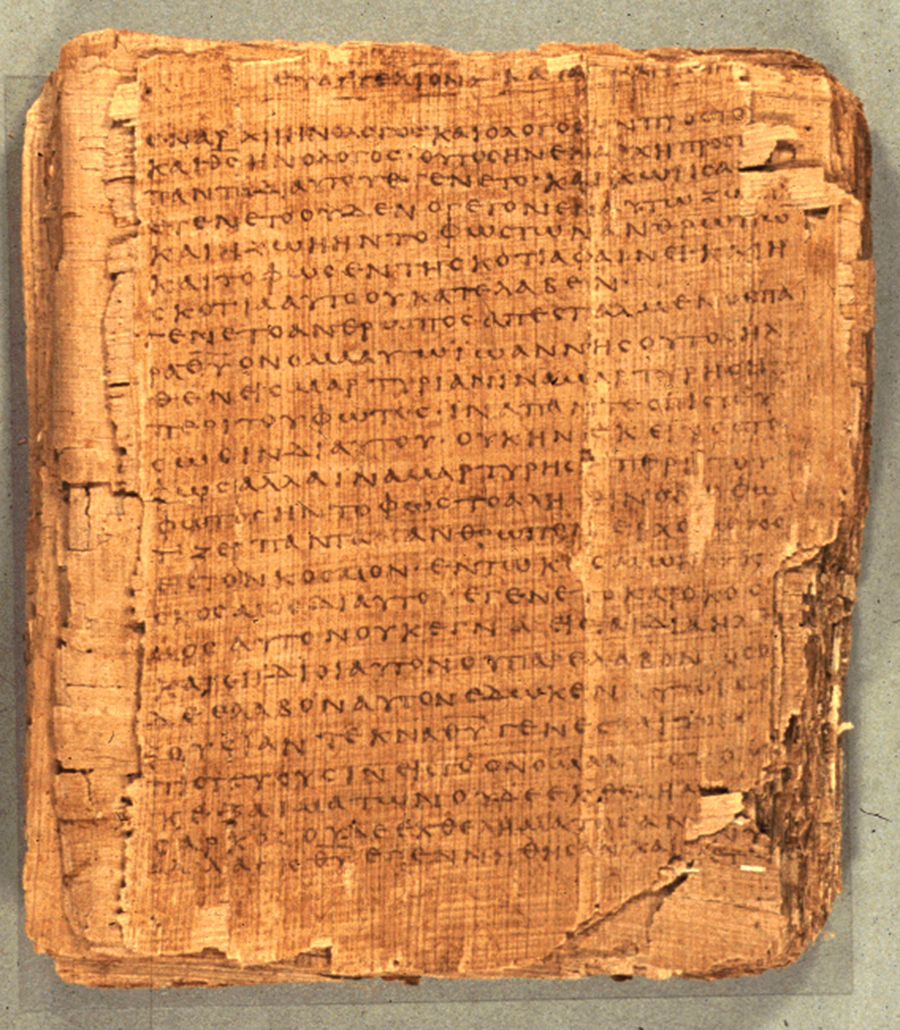 ΕΥΑΓΓΕΛΙΟΝ ΚΑΤΑ
ΕΝΑΡΧΗΙΗΝΟΛΟΓΟϹΚΑΙΟΛΟΓΟϹΗΝΠΡΟϹΤΟ
ΚΑΙΘ̅Ϲ̅ΗΝΟΛΟΓΟϹ·ΟΥΤΟϹΗΝΕΝΑΡΧΗΠΡΟϹ
ΠΑΝΤΑΔΙΑΥΤΟΥΕΓΕΝΕΤΟ·ΚΑΙΧΩΡΙϹΑ
ΕΓΕΝΕΤΟΟΥΔΕΝΟΓΕΓΟΝΕΝΕΝΑΥΤΩΖΩ
ΚΑΙΗΖΩΗΗΝΤΟΦΩϹΤΩΝΑΝΘΡΩΠΩ
ΚΑΙΤΟΦΩϹΕΝΤΗϹΚΟΤΙΑΦΑΙΝΕΙ·ΚΑΙΗ
ϹΚΟΤΙΑΑΥΤΟΟΥΚΑΤΕΛΑΒΕΝ·
ΕΓΕΝΕΤΟΑΝΘΡΩΠΟϹΑΠΕϹΤΑΛΜΕΝΟϹΠΑ
ΡΑΘ̅Υ̅ΟΝΟΜΑΑΥΤΩΪΩΑΝΝΗϹΟΥΤΟϹΗΛ
ΘΕΝΕΙϹΜΑΡΤΥΡΙΑΝΙΝΑΜΑΡΤΥΡΗϹΗ
ΠΕΡΙΤΟΥΦΩΤΟϹ·ΙΝΑΠΑΝΤΕϹΠΙϹΤΕΥ
ϹΩϹΙΝΔΙΑΥΤΟΥ·ΟΥΚΗΝΕΚΕΙΝΟϹΤΟ
ΦΩϹΑΛΛΑΙΝΑΜΑΡΤΥΡΗϹΗΠΕΡΙΤΟΥ
ΦΩΤΟϹΗΝΤΟΦΩϹΤΟΑΛΗΘΙΝΟΝΟΦΩ
ΤΙΖΕΙΠΑΝΤΑΑΝΘΡΩΠΟΝΕΡΧΟΜΕΝΟ
ΕΙϹΤΟΝΚΟϹΜΟΝ·ΕΝΤΩΚΟϹΜΩΗΝ
ΚΟϹΜΟϹΔΙΑΥΤΟΥΕΓΕΝΕΤΟΚΑΙΟΚΟϹ
ΜΟϹΑΥΤΟΝΟΥΚΕΓΝΩΕΙϹΤΑΙΔΙΑΗΛ
ΚΑΙΟΙΙΔΙΟΙΑΥΤΟΝΟΥΠΑΡΕΛΑΒΟΝΟϹΟ
ΔΕΕΛΑΒΟΝΑΥΤΟΝΕΔΩΚΕΝΑΥΤΟΙϹΕ
ΞΟΥϹΙΑΝΤΕΚΝΑΘ̅Υ̅ΓΕΝΕϹΘΑΙΤΟΙϹ
ΠΙϹΤΕΥΟΥϹΙΝΕΙϹΤΟΟΝΟΜΑΑΥΤΟΥΟΙΟΥ
ΚΕΞΑΙΜΑΤΩΝΟΥΔΕΕΚΘΕΛΗΜΑ
ϹΑΡΚΟϹΟΥΔΕΕΚΘΕΛΗΜΑΤΟϹΑΝ
ΑΛΛΑΕΚΘ̅Υ̅ΕΓΕΝΝΗΘΗϹΑΝΚΑΙ